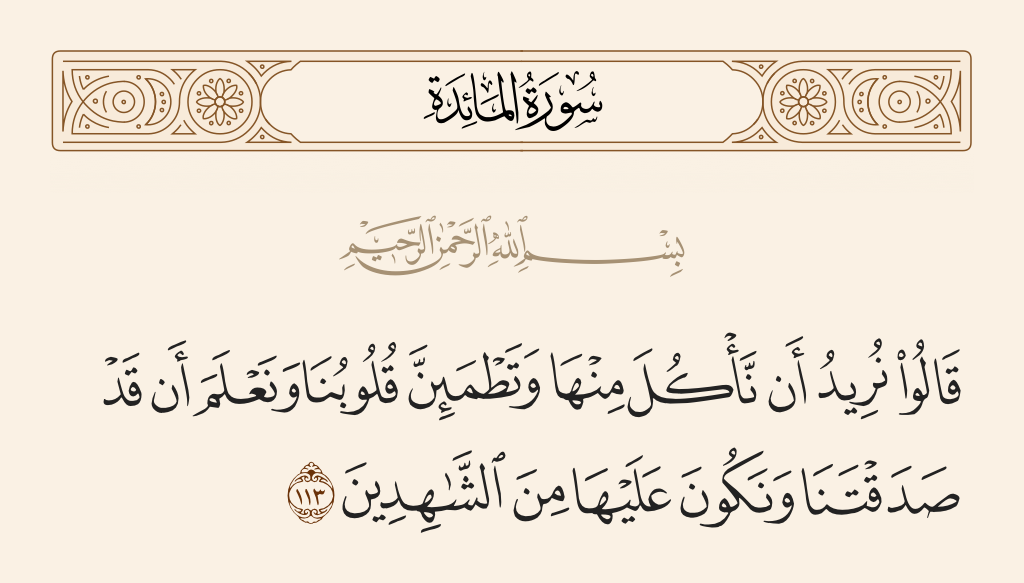 سُورَةُ المَائِدَةِ
بِسْمِ ٱللَّهِ ٱلرَّحْمَٰنِ ٱلرَّحِيمِ
قَالُوا۟ نُرِيدُ أَن نَّأْكُلَ مِنْهَا وَتَطْمَئِنَّ قُلُوبُنَا وَنَعْلَمَ أَن قَدْ
صَدَقْتَنَا وَنَكُونَ عَلَيْهَا مِنَ ٱلشَّٰهِدِينَ ١١٣